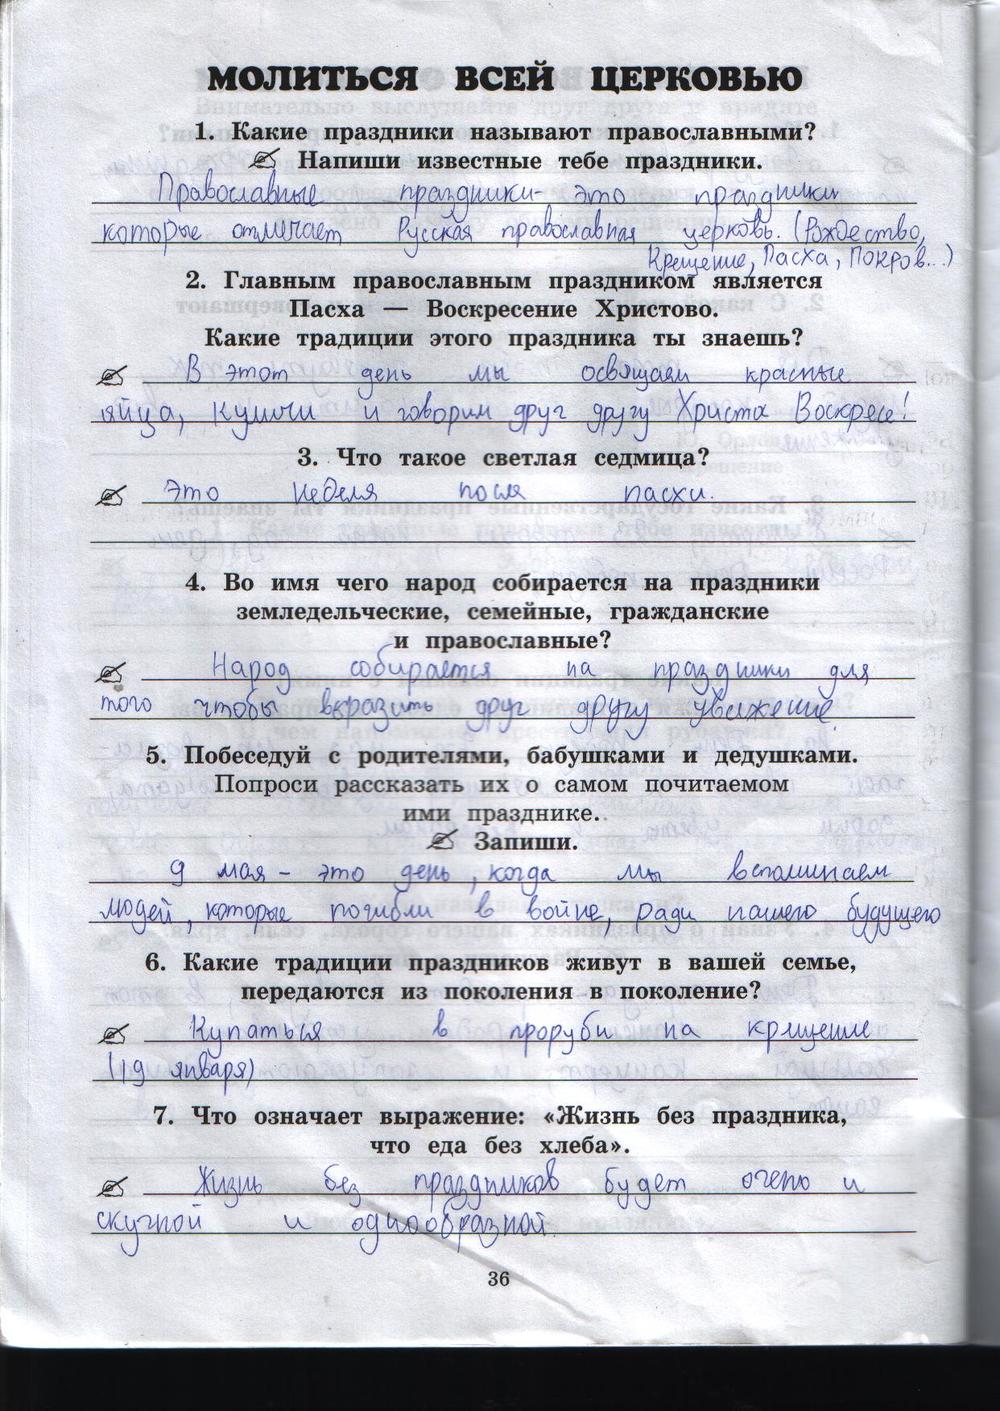 МОЛИТЬСЯ ВСЕЙ ЦЕРКОВЬЮ
1. Какие праздники называют православными?
Напиши известные тебе праздники.
Православные праздники- это праздники
которые отмечает Русская православная церковь. (Рождество,
Крещение, Пасха, Покров...)
2. Главным православным праздником является
Пасха — Воскресение Христово.
Какие традиции этого праздника ты знаешь?
В этот день мы освящаем красные
яйца, куличи и говорим друг другу Христа Воскресе!
3. Что такое светлая седмица?
Это неделя после пасхи.
4. Во имя чего народ собирается на праздники
земледельческие, семейные, гражданские
и православные?
Народ собирается на праздники для
того чтобы выразить друг другу уважение
5. Побеседуй с родителями, бабушками и дедушками.
Попроси рассказать их о самом почитаемом
ими празднике.
Запиши.
9 мая - это день, когда мы вспоминаем
людей, которые погибли в войне, ради нашего будущего
6. Какие традиции праздников живут в вашей семье,
передаются из поколения в поколение?
Купаться в проруби на крещение
(19 января)
7. Что означает выражение: «Жизнь без праздника,
что еда без хлеба».
Жизнь без праздников будет очено и
скучной и однообразной.
36